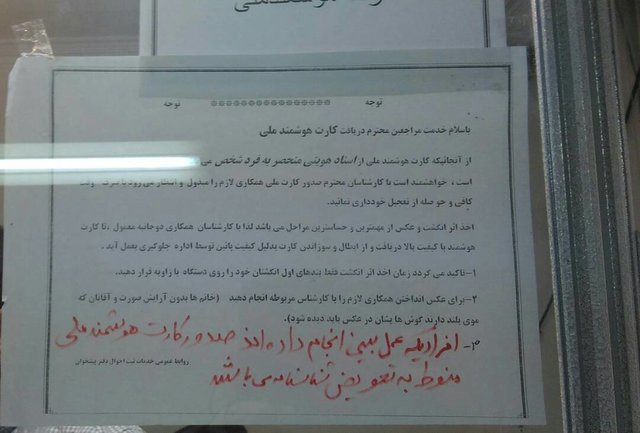 توجه **************** توجه
باسلام خدمت مراجعین محترم دریافت کارت هوشمند ملی
از آنجائیکه کارت هوشمند ملی از اسناد هویتی منحصر به فرد شخص می
است ، خواهشمند است با کارشناسان محترم صدور کارت ملی همکاری لازم را مبذول و انتظار می رود با صرف وقت
کافی و حو صله از تعجیل خودداری نمائید.
اخذ اثر انگشت و عکس از مهمترین و حساسترین مراحل می باشد لذا با کارشناسان همکاری دوجانبه معمول ،تا کارت
هوشمند با کیفیت بالا دریافت و از ابطال و سوزاندن کارت بدلیل کیفیت پائین توسط اداره جلوگیری بعمل آید .
۱-تاکید می گردد زمان اخذ اثر انگشت فقط بندهای اول انکشتان خود را روی دستگاه با زاویه قرار دهید.
۲-برای عکس انداختن همکاری لازم را با کارشناس مربوطه انجام دهید (خانم ها بدون آرایش صورت و آقایان که
موی بلند دارند گوش ها یشان در عکس باید دیده شود).
۳- افرادیکه عمل بینی انجام داده اند صدور کارت هوشمند ملی
منوط به تعویض شناسنامه می باشد
روابط عمومی خدمات ثبت احوال دفتر پیشخوان